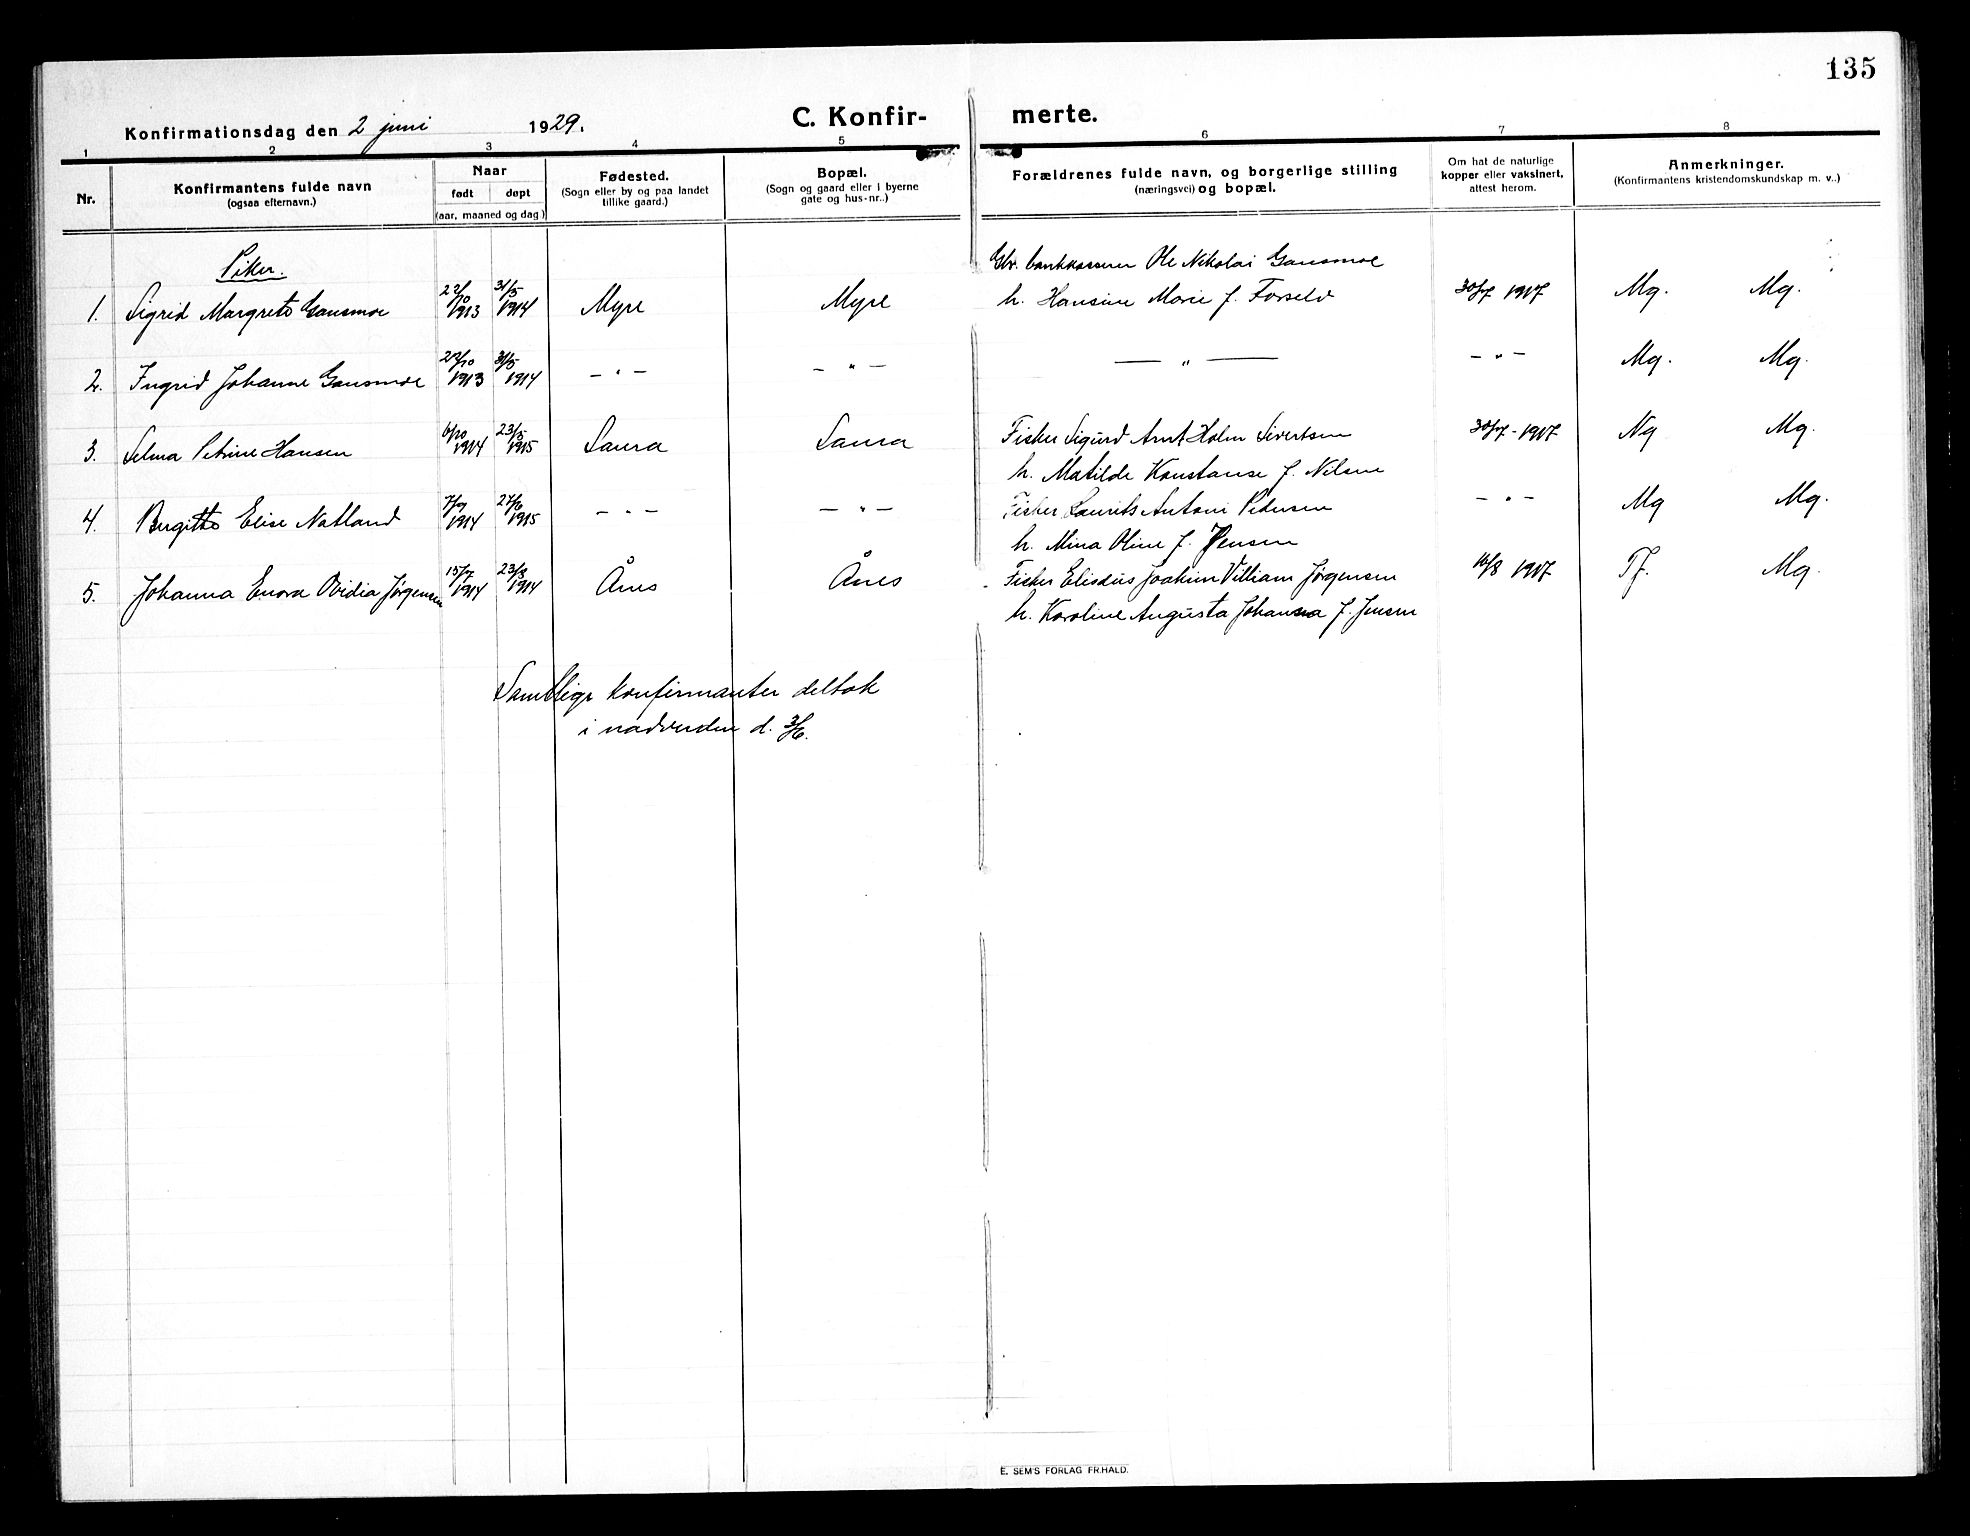 135
Konfirmationsdag den 2 juni 1929. C. Konfir- merte.
1 2 3 4 5 6 7 8
Nr. Konfirmantens fulde navn (ogsaa efternavn.) Naar født døpt (aar, maaned og dag) Fødested. (Sogn eller by og paa landet tillike gaard.) Bopæl. (Sogn og gaard eller i byerne gate og hus-nr..) Forældrenes fulde navn, og borgerlige stilling (næringsvei) og bopæl. Om hat de naturlige kopper eller vaksinert, attest herom. Anmerkninger. (Konfirmantens kristendomskundskap m. v.)
Piker.
Ole Nikolai Gausmoe
1. Sigrid Margrete Gausmoe 22/10 1913 31/5 1914 Myre Myre h. Hansine Marie f. Forselv 30/7 1917 Mg. Mg.
2. Ingrid Johanne Gausmoe 22/10 1913 31/5 1914 - " - - " - — " — - " - Mg. Mg.
3. Selma Petrine Hansen 6/10 1914 23/5 1915 Saura Saura Fisker Sigurd Arnt Holm Sivertsen 30/7 - 1917 Ng Mg.
h. Matilde Konstanse f. Nilsen
4. Birgitte Elise Natland 7/9 1914 27/6 1915 - " - - " - Fisker Laurits Antoni Pedersen - " - Mg Mg.
h. Mina Oline f. Jensen
5. Johanna Enora Ovidia Jørgensen 15/7 1914 23/8 1914 Ånes Ånes Fisker Elisæus Joakim Villiam Jørgensen 16/8 1917 Tf. Mg.
h. Karoline Augusta Johanna f. Jensen
Samtlige konfirmanter deltok
i nadverden d. 3/6.
E. SEM'S FORLAG FR.HALD.